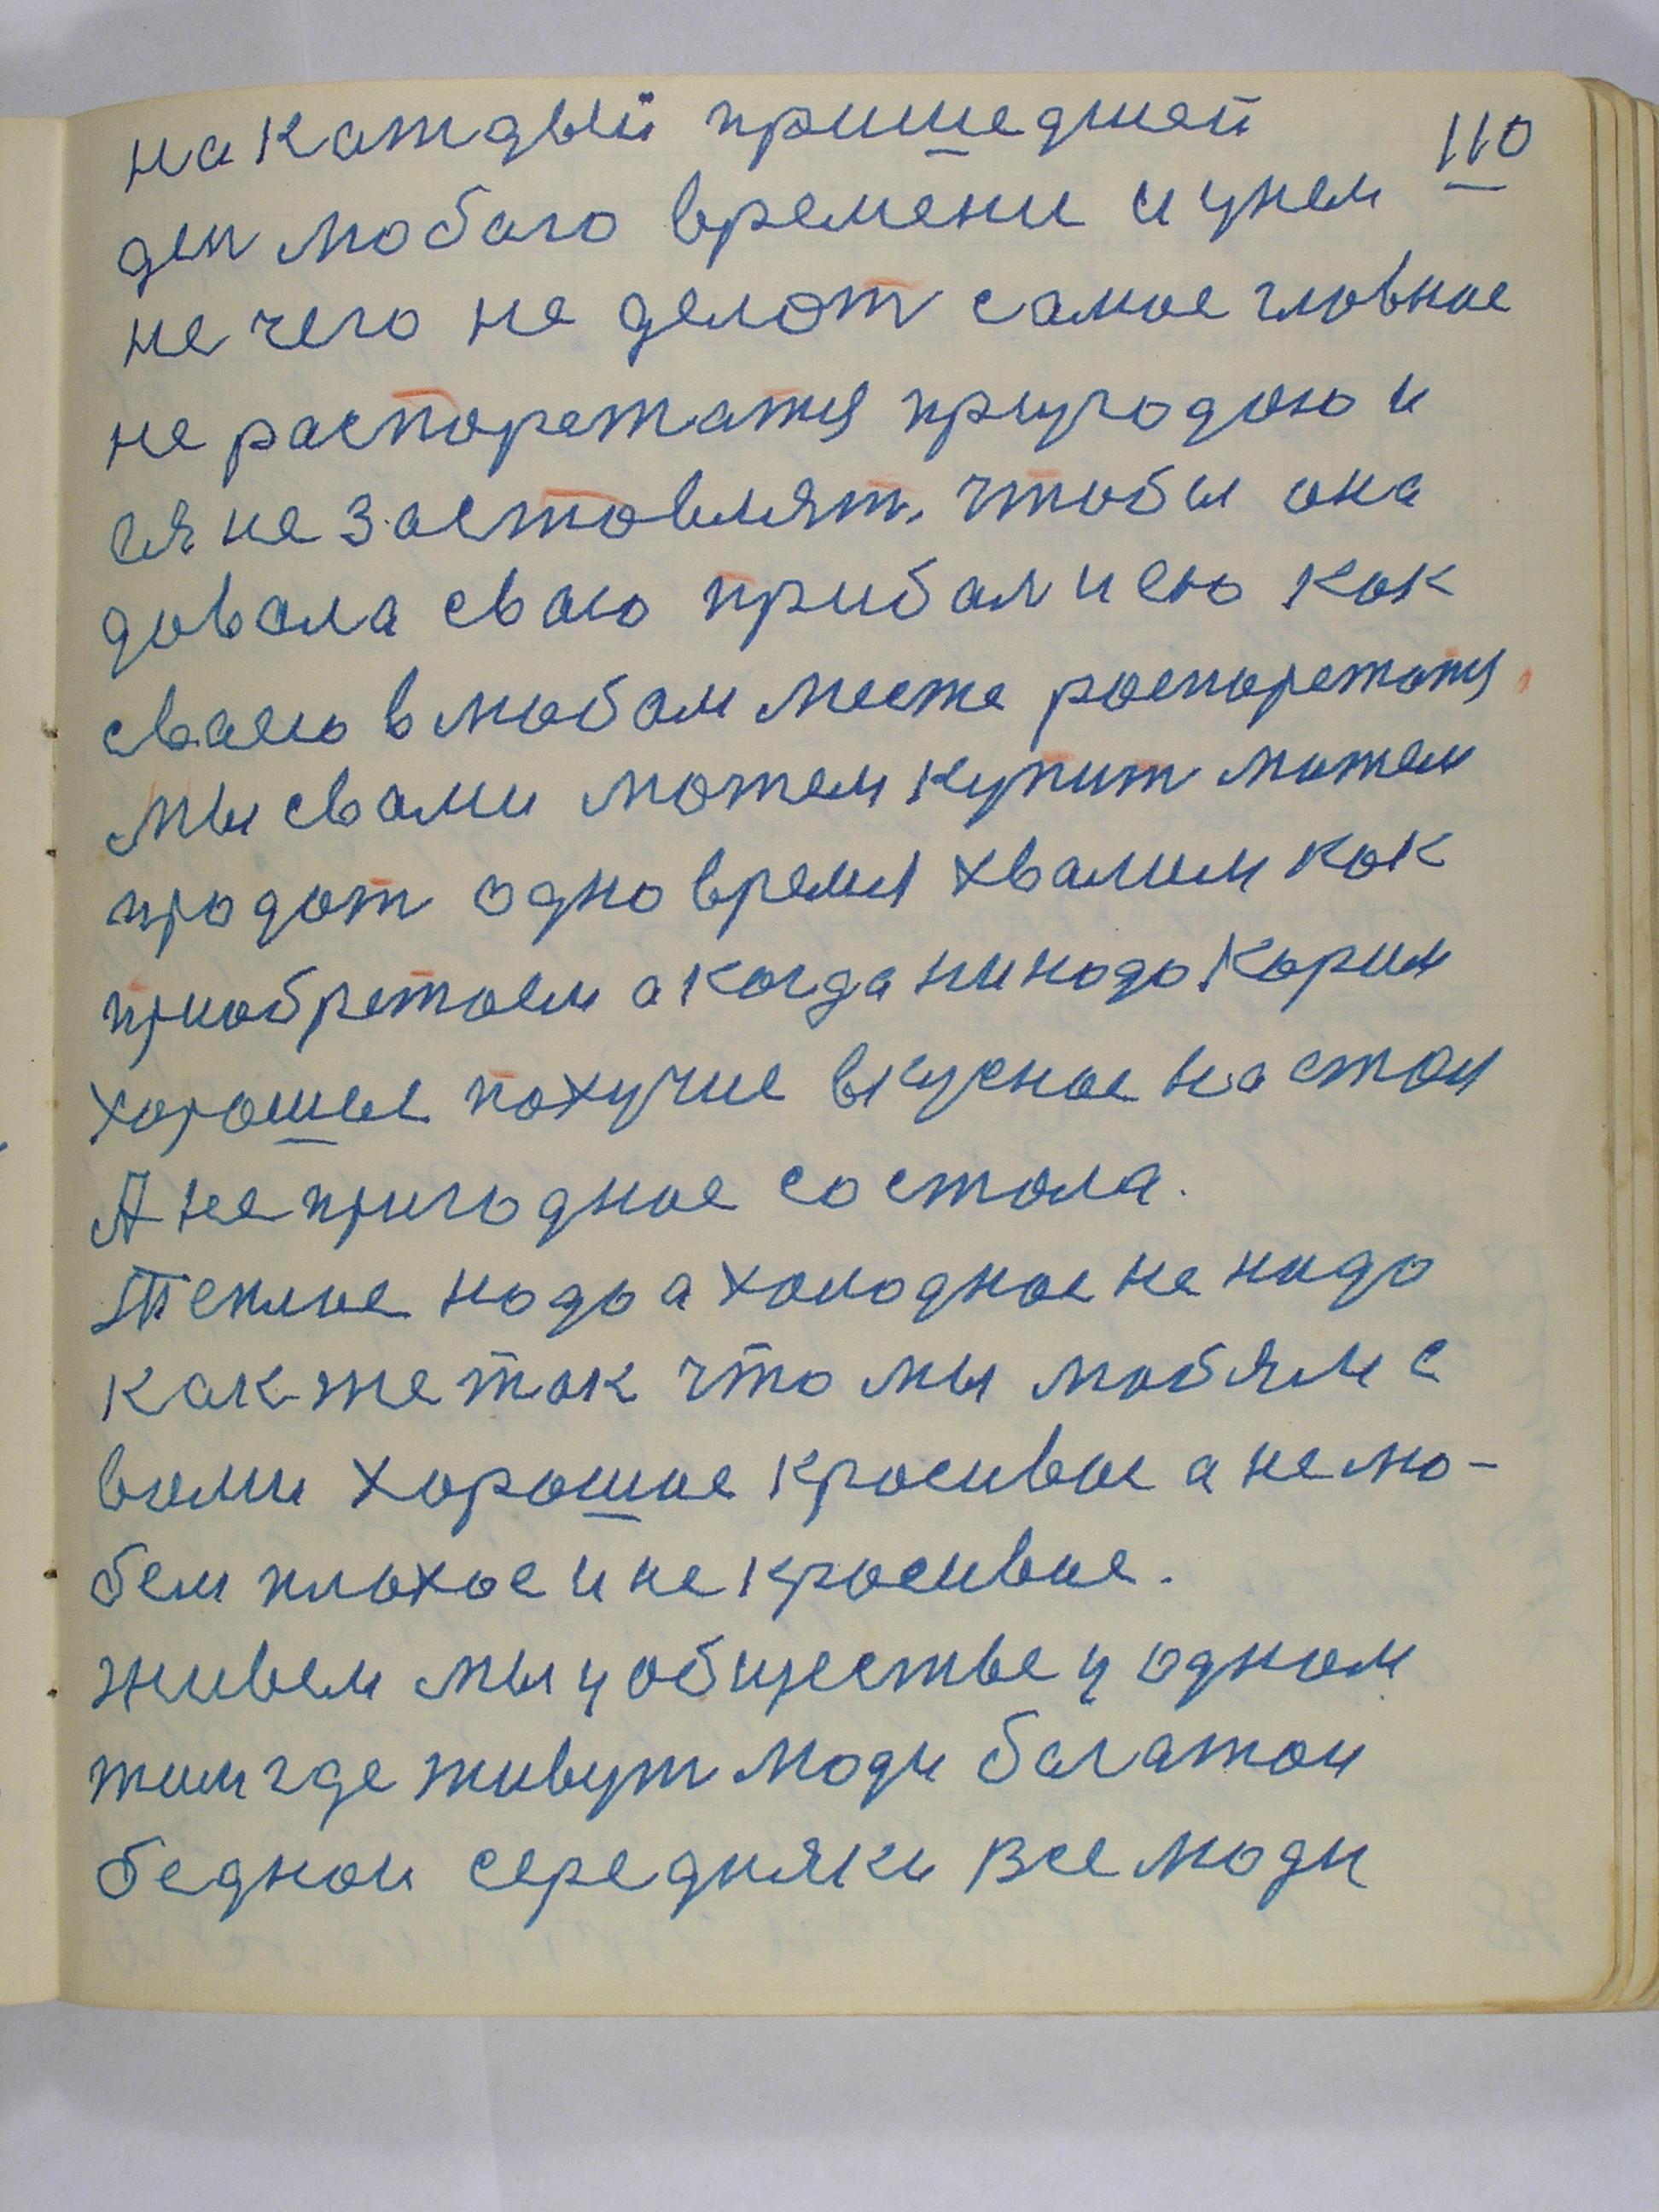 на каждый пришедшей
110
ден любого времени и у нем
не чего не делат самое главное
не распоряжатжя природою и
ея не заставлят, чтобы она
давала сваю прибал и ею как
сваею в любом месте распоряжатжя
мы с вами можем купит можем
продат одно время хвалим как
приобретаем а когда ни надо Корим
хорошее пахучие вкусное на стол
А не пригодное со стола.
Теплое надо а холодное не надо
как же так что мы любям с
вами хорошое красивое а не лю-
бем плохое и не красивое.
живем мы у обществе у одном
жим где живут люди багатои
беднои середняки все люди